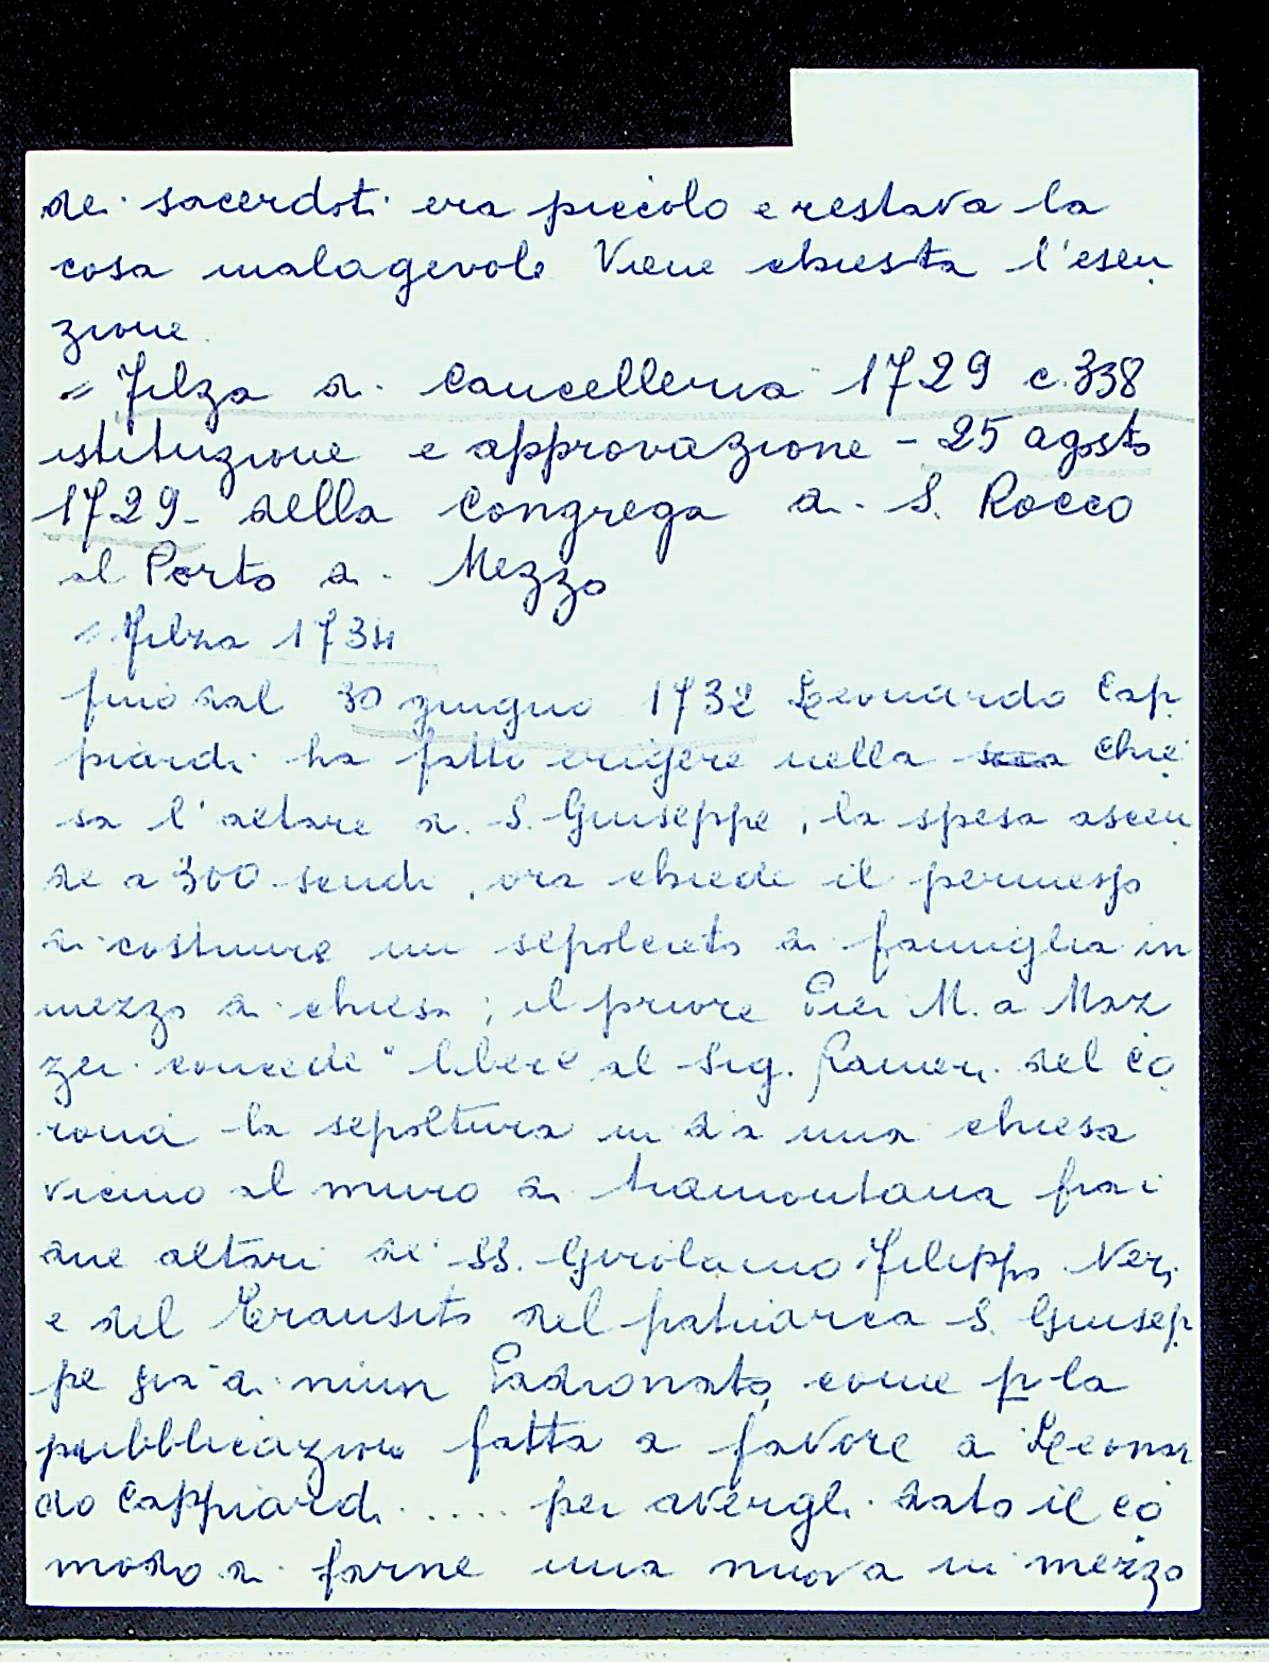 dei sacerdoti era piccolo e restava la
cosa malagevole Viene chiesta l'esen
zione.
= Filza di Cancelleria 1729 c. 338
istituzione e approvazione - 25 agosto
1729 - della Congrega di S. Rocco
al Porto di Mezzo
= Filza 1734
fino dal 30 giugno 1732 Leonardo Cap
piardi ha fatto erigere nella sua Chie
sa l'altare di S. Giuseppe, la spesa ascen
de a 300 scudi, ora chiede il permesso
di costruire un sepolcreto di famiglia in
mezzo di chiesa; il priore Pier M.a Maz
zei concede "libere al Sig. Ranieri del Co
rona la sepoltura in d.a mia chiesa
vicino al muro di tramontana fra i
due altari de' SS. Girolamo Filippo Neri
e del Transito del patriarca S. Giusep
pe già di niun Padronato, come p la
pubblicazione fatta a favore di Leonar
do Cappiardi ..... per avergli dato il co
modo di farne una nuova in mezzo